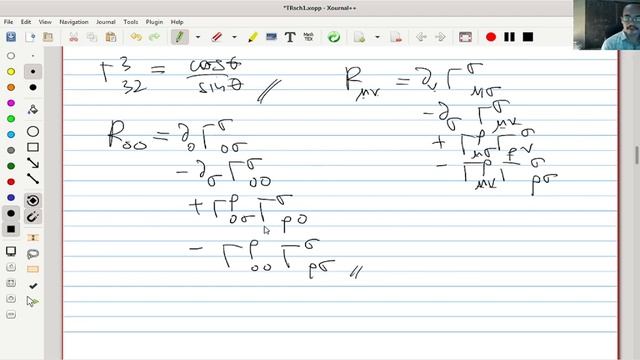 *TRsch1.xopp - Xournal++
File Edit View Navigation Journal Tools Plugin Help
Γ³₃₂ = cosθ/sinθ //
R_μν = ∂_ν Γ^σ_μσ
− ∂_σ Γ^σ_μν
+ Γ^ρ_μσ Γ^σ_ρν
− Γ^ρ_μν Γ^σ_ρσ
R₀₀ = ∂₀ Γ^σ_0σ
− ∂_σ Γ^σ_00
+ Γ^ρ_0σ Γ^σ_ρ0
− Γ^ρ_00 Γ^σ_ρσ //